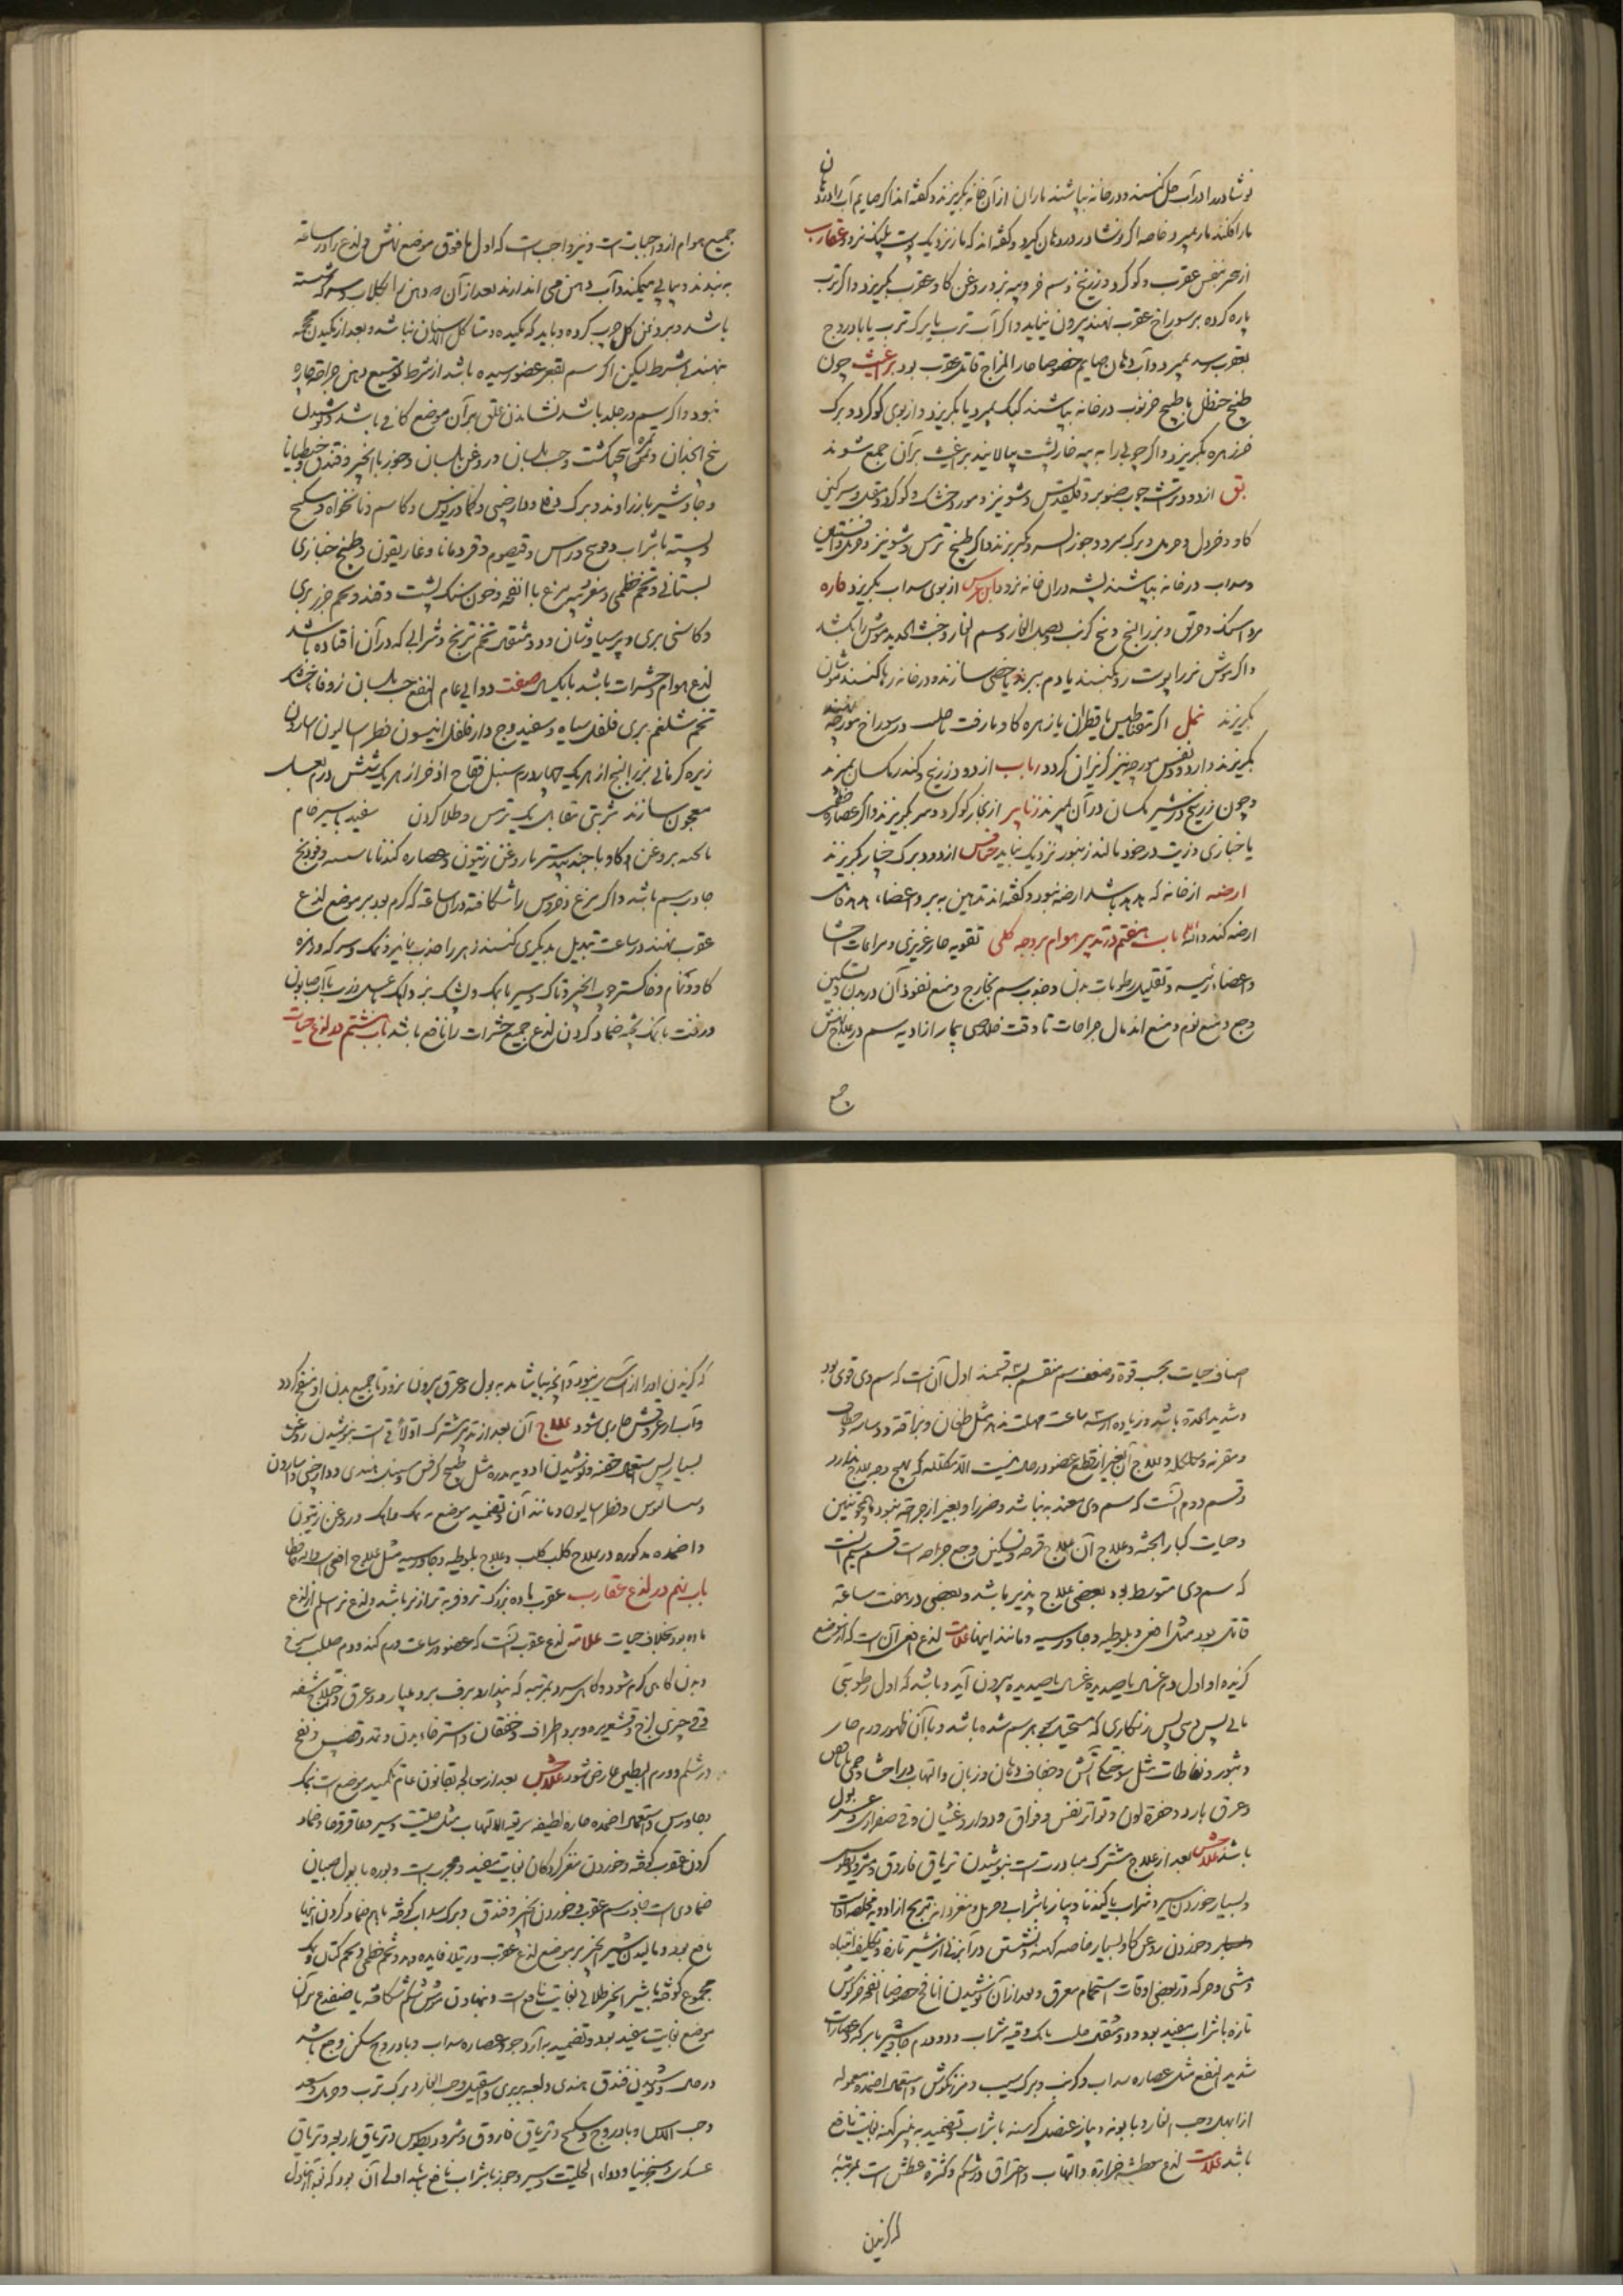 نوشادر را در آب حل کنند و در خانه بپاشند ماران از آن خانه بگریزند و گفته اند اگر صایم آب دهان را در دهان
مار افکند مار بمیرد خاصه اگر نوشادر در دهان گیرد و گفته اند که مار نزدیک پوست پلنگ نرود عقارب
از بنفس عقرب و گوگرد و زرنیخ و سم خر و پیه بز و روغن گاو عقرب بگریزد و اگر ترب
پاره کرده بر سوراخ عقرب نهند بیرون نیاید و اگر آب ترب یا برگ ترب یا بادروج
بعقرب رسد بمیرد و آب دهان صایم خصوصا حار المزاج قاتل عقرب بود براغیث چون
طبیخ حنظل یا طبیخ خرنوب در خانه بپاشند کیک بمیرد یا بگریزد و از بوی گوگرد و برگ
خرزهره بگریزد و اگر چوبی را به پیه خارپشت بیالایند براغیث بر آن جمع شوند
بق از دود چوب صنوبر و قلقدیس و شونیز و مورد خشک و گوگرد و مقل و سرگین
گاو و خردل و حرمل و برگ سرو و جوز السرو بگریزند و اگر طبیخ ترمس و شونیز و حرمل و افسنتین
و سداب در خانه بپاشند پشه در آن خانه نرود ابن عرس از بوی سداب بگریزد فاره
مرداسنگ و خربق و بزر البنج و بیخ کرنب و بصل الفار و سم الفار و خبث الحدید موش را بکشد
و اگر موش نر را پوست رو بکنند یا دم ببرند یا خصی سازند و در خانه رها کنند موشان
بگریزند نمل اگر مقناطیس یا قطران یا زهره گاو یا زفت یا حلتیت در سوراخ مورچه نهند
بگریزند و از دود نفس مورچه نیز گریزان گردد ذباب از دود زرنیخ و کندر مگسان بمیرند
و چون زرنیخ در شیر مگسان در آن بمیرند زنابیر از بخار گوگرد و سیر بگریزند و اگر عصاره خطمی
یا خبازی و زیت در خود مالند زنبور نزدیک نیاید خنافس از دود برگ چنار بگریزند
ارضه از خانه که هدهد باشد ارضه نبود و گفته اند تدخین به پر و اعضاء هدهد
ارضه کند والله اعلم باب هفتم در تدبیر هوام بر وجه کلی تقویه حار غریزی و مراعات احشا
و اعضاء رئیسه و تقلیل رطوبات بدن و جذب سم بخارج و منع نفوذ آن در بدن و تسکین
وجع و منع نوم و منع اندمال جراحات تا وقت خلاصی بیمار از اذیه سم در علاج نهش
جمیع
جمیع هوام از واجبات است و نیز واجب است که اول مافوق موضع نهش و لدغ را در ساعه
ببندند و بپیاپی میمکند و آب دهن می اندازند بعد از آن که دهن را بگلاب و سرکه شسته
باشد و بروغن گل چرب کرده و باید که مکیده متاکل الاسنان نباشد و بعد از مکیدن محجمه
نهند بی شرط لیکن اگر سم بقعر عضو رسیده باشد از شرط و توسیع دهن جراحت چاره
نبود و اگر سم در جلد باشد نشاندن علق بر آن موضع کافی باشد و نوشیدن
بیخ انجدان و ثمره پنجنگشت و حب بلسان و روغن بلسان و جوز با انجیر و فندق و جنطیانا
و جاوشیر با زراوند و برگ دفلی و دارچینی و کمادریوس و کاشم و نانخواه و سکبینج
و پسته با شراب و وج و راسن و قیصوم و قردمانا و غاریقون و طبیخ خبازی
بستانی و تخم خطمی و مغز سر مرغ با انفحه و خون سنگ پشت و قند و تخم جزر بری
و کاسنی بری و پرسیاوشان و دو مثقال تخم ترنج و شرابی که در آن افتاده باشد
لدغ هوام و حشرات باشد بابکساک صفت دوایی عام النفع حب بلسان زوفا خشک
تخم شلغم بری فلفل سیاه و سفید وج دارفلفل انیسون فطراسالیون اسارون
زیره کرمانی بزر البنج از هر یک چهار درم سنبل فقاح اذخر از هر یک شش درم بعسل
معجون سازند شربتی مقابل یک ترمس و طلا کردن سفید سیر خام
یا پخته بروغن گاو یا جندبیدستر یا روغن زیتون و عصاره گندنا و فودنج
جاذب سم باشد و اگر مرغ و خروس را شکافته در آن ساعت که گرم بود بر موضع لدغ
عقرب نهند و در ساعت تبدیل بدیگری کنند زهر را جذب نماید و نمک و سرکه و زهره
گاو و نمام و خاکستر چوب انجیر و تاک و سیر با نمک و پشک بز و آهک بعسل و زیت یا آب صابون
و زفت با نمک پخته ضماد کردن لدغ جمیع حشرات را نافع باشد باب هشتم در لدغ حیات
اصناف حیات بحسب قوة و ضعف سم منقسم بسه قسمند اول آن است که سم وی قوی بود
و شدید الحدة باشد و زیاده از سه ساعت مهلت ندهد مثل طحان و بزاقه و وساله و خطاف
و مقرنه و مکلله و علاج آن بغیر از قطع عضو در حال نیست الا مکلله که بهیچ وجه علاج ندارد
و قسم دوم آنست که سم وی معتد به نباشد و ضرر او بغیر از جرحه نبود مانند تنین
و حیات کبار الجثه و علاج آن علاج قرحه و تسکین وجع جراحه است قسم سیم آنست
که سم وی متوسط بود بعضی علاج پذیر باشد و بعضی در هفت ساعة
قاتل بود مثل افعی و بلوطیه و جاورسیه و مانند اینها علامت لدغ افعی آن است که از موضع
گزیده او اول دم غسالی یا صدیدی غسالی یا صدیدی بیرون آید و باشد که اول رطوبتی
مائی پس دمی پس زنگاری که مستحیل بجوهر سم شده باشد و با آن ظهور ورم حار
و بثور و نفاطات مثل سوختگی آتش و جفاف دهان و زبان و التهاب در احشا و حمی با نافض
و عرق بارد و خضرة لون و تواتر نفس و فواق و دوار و غشیان و قی صفراوی و عسر بول
باشد علاجش بعد از علاج مشترک مبادرت است بنوشیدن تریاق فاروق و مثرودیطوس
و بسیار خوردن سیر و شراب یا گندنا و پیاز با شراب و حرمل و مغز دانه ترنج از ادویه مخلصه اوست
و خوردن روغن گاو بسیار خاصه کهنه و نشستن در آبزنی از شیر تازه و تکلیف انتباه
و مشی و حرکه و در بعضی اوقات استحمام معرق و بعد از آن نوشیدن انافح خصوصا انفحه خرگوش
تازه با شراب مفید بود و دو مثقال با یک وقیه شراب و دو درم جاوشیر با سرکه و عصارات
شدید النفع مثل عصاره سداب و کرنب و برگ سیب و مرزنگوش و استعمال اضمده معموله
از ابهل و حب الغار و بابونه و پیاز عنصل و کرسنه با شراب و تضمید به پنیر کهنه بغایت نافع
باشد علامت لدغ معطشه حرارة و التهاب و احتراق در شکم و کثرة عطش است بمرتبه
که گزیدن
که گزیدن او را از آب سیری نبود و آنچه بیاشامد به بول و عرق بیرون نرود تا جمیع بدن او منتفخ گردد
و آب در عروقش جاری شود علاج آن بعد از تدبیر مشترک اولا قی است بنوشیدن روغن
بسیار پس استعمال حقنه و نوشیدن ادویه مدره مثل طبیخ کرفس و سنبل هندی و دارچینی و اسارون
و سالیوس و فطراسالیون و مانند آن و تضمید موضع به نمک و آهک و روغن زیتون
و اضمده مذکوره در علاج کلب کلب و علاج بلوطیه و جاورسیه مثل علاج افعی است
باب نهم در لدغ عقارب عقرب ماده بزرگتر و فربه تر از نر باشد و لدغ نر اسلم از لدغ
ماده بود بخلاف حیات علامة لدغ عقرب آنست که عضو در ساعت ورم کند و ورم صلب سرخ
و بدن گاهی گرم شود و گاهی سرد بمرتبه که پندارد برف برو میبارد و عرق و اختلاج شفه
و قی چیزی لزج و قشعریره و برد اطراف و خفقان و استرخاء بدن و تمدد قضیب و نفخ
در شکم و ورم ابطین عارض شود علاجش بعد از معالجه بقانون عام تکمید موضع است بنمک
و جاورس و استعمال اضمده حاره لطیفه سریعة الالتهاب مثل حلتیت و سیر و عاقرقرحا و ضماد
کردن عقرب کوفته و خوردن مغز گردکان بغایت مفید و مجرب است و بوره با بول صبیان
ضمادی است جاذب سم عقرب و خوردن انجیر و فندق و برگ سداب کوفته با هم و ضماد کردن اینها
نافع بود و مالیدن شیر انجیر بر موضع لدغ عقرب و رتیلا فایده دهد و تخم خطمی و تخم کتان و نمک
مجموع کوفته با شیر انجیر طلائی بغایت نافع است و نهادن موش شکم شکافته یا ضفدع بر آن
موضع بغایت مفید بود و تضمید به آرد جو و عصاره سداب و بادروج مسکن وجع باشد
در حال و نوشیدن فندق هندی و لعبه بربری و اشقیل و حب الغار و برگ ترب و حرمل و سعد
و حب الاس و بادروج و سکبینج و تریاق فاروق و مثرودیطوس و تریاق اربعه و تریاق
عسکری و سنجرینیا و دواء الحلتیت و سیر و جوز با شراب نافع باشد اولی آن بود که